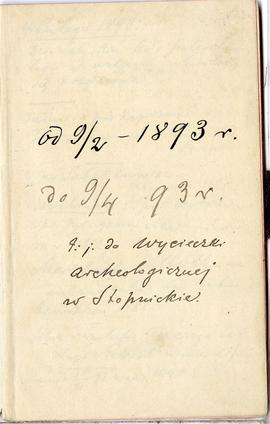 od 9/2 – 1893 r.
do 9/4 93 r.
t. j. do Wycieczki
Archeologicznej
w Stopnickie.